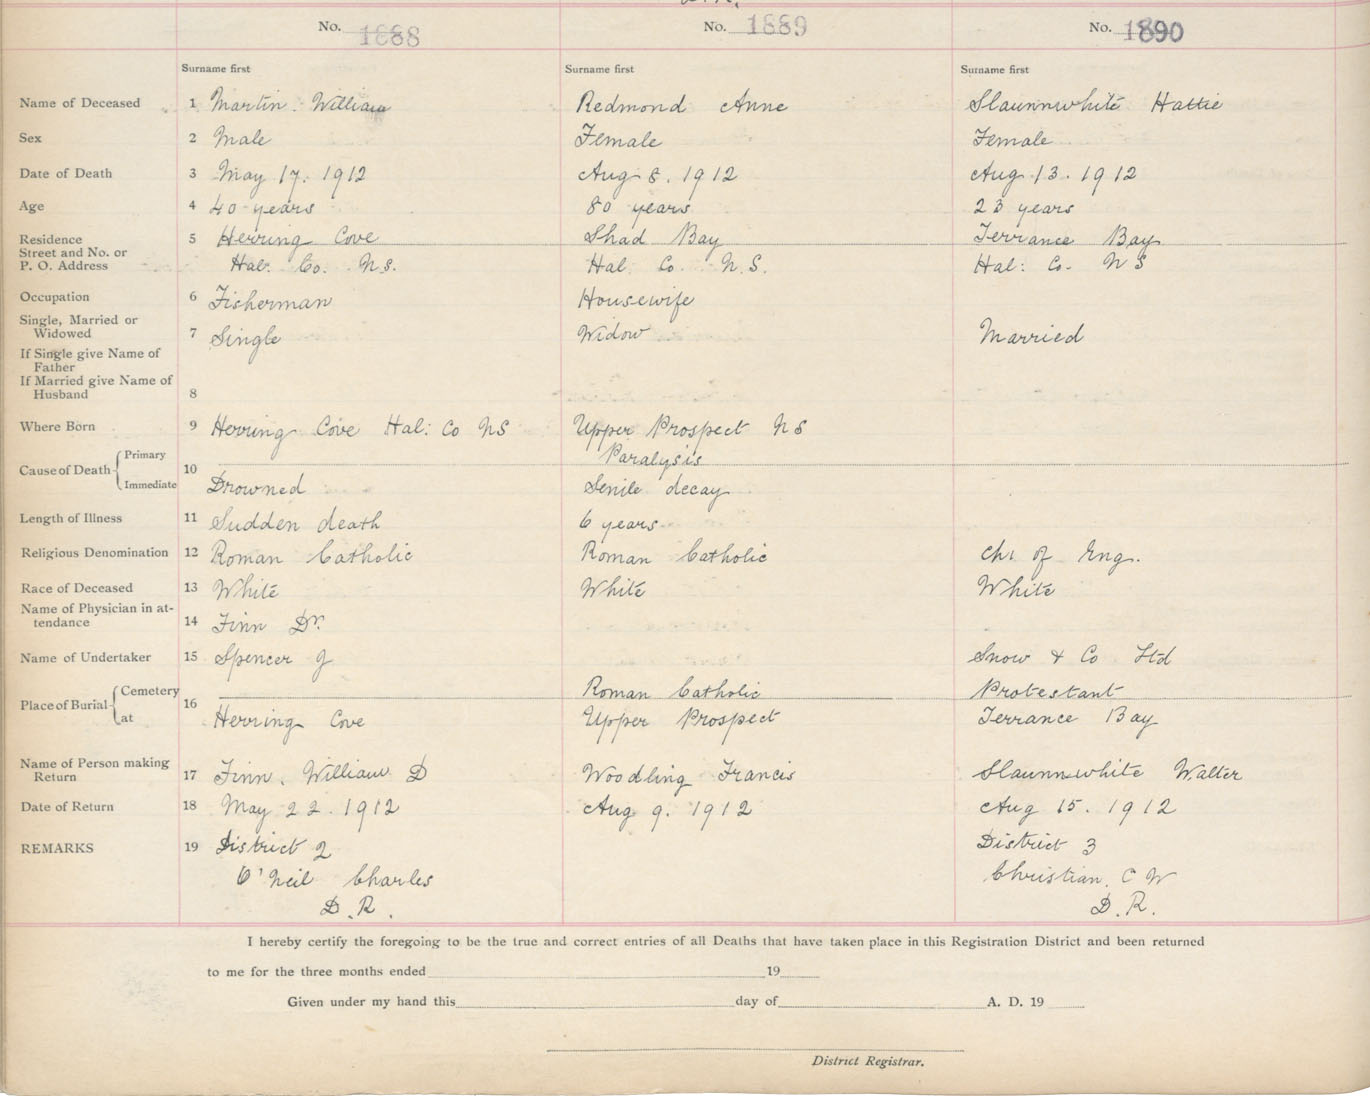 No. 1888 No. 1889 No. 1890
Surname first Surname first Surname first
Name of Deceased 1 Martin William Redmond Anne Slaunwhite Hattie
Sex 2 Male Female Female
Date of Death 3 May 17. 1912 Aug 8. 1912 Aug 13. 1912
Age 4 40 years 80 years 23 years
Residence 5 Herring Cove Shad Bay Terrance Bay
Street and No. or
P. O. Address Hal: Co. N.S. Hal Co N.S. Hal: Co. N S
Occupation 6 Fisherman Housewife
Single, Married or
Widowed 7 Single Widow Married
If Single give Name of
Father
If Married give Name of
Husband 8
Where Born 9 Herring Cove Hal: Co NS Upper Prospect NS
Cause of Death Primary Paralysis
10
Immediate Drowned Senile decay
Length of Illness 11 Sudden death 6 years
Religious Denomination 12 Roman Catholic Roman Catholic Ch. of Eng.
Race of Deceased 13 White White White
Name of Physician in at-
tendance 14 Finn Dr.
Name of Undertaker 15 Spencer J Snow & Co Ltd
Place of Burial Cemetery Roman Catholic Protestant
16
at Herring Cove Upper Prospect Terrance Bay
Name of Person making
Return 17 Finn. William D Woodling Francis Slaunwhite Walter
Date of Return 18 May 22. 1912 Aug 9. 1912 Aug 15. 1912
REMARKS 19 District 2 District 3
O'Neil Charles Christian. C W
D.R. D.R.
I hereby certify the foregoing to be the true and correct entries of all Deaths that have taken place in this Registration District and been returned
to me for the three months ended 19
Given under my hand this day of A. D. 19
District Registrar.